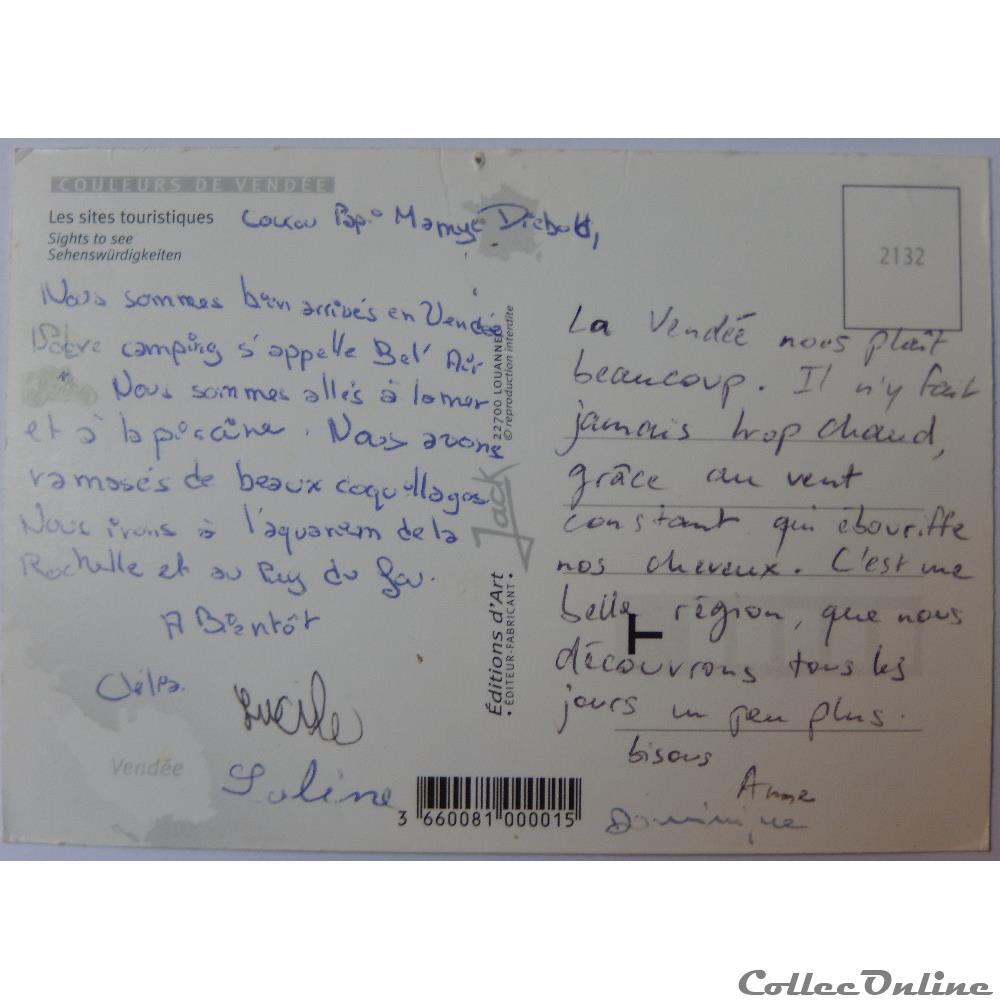 COULEURS DE VENDÉE
Les sites touristiques
Sights to see
Sehenswürdigkeiten
Coucou Papi Mamye Diebold,
Nous sommes bien arrivés en Vendée
Notre camping s'appelle Bel' Air
Nous sommes allés à la mer
et à la piscine. Nous avons
ramasés de beaux coquillages
Nous irons à l'aquarium de la
Rochelle et au Puy du Fou.
A Bientôt
Célia.
Lucile
Soline
Vendée
Éditions d'Art Jack
• ÉDITEUR-FABRICANT •
22700 LOUANNEC
© reproduction interdite
3 660081 000015
2132
La Vendée nous plaît
beaucoup. Il n'y fait
jamais trop chaud,
grâce au vent
constant qui ébouriffe
nos cheveux. C'est une
belle région, que nous
découvrons tous les
jours un peu plus.
bisous
Anne
Dominique
CollecOnline